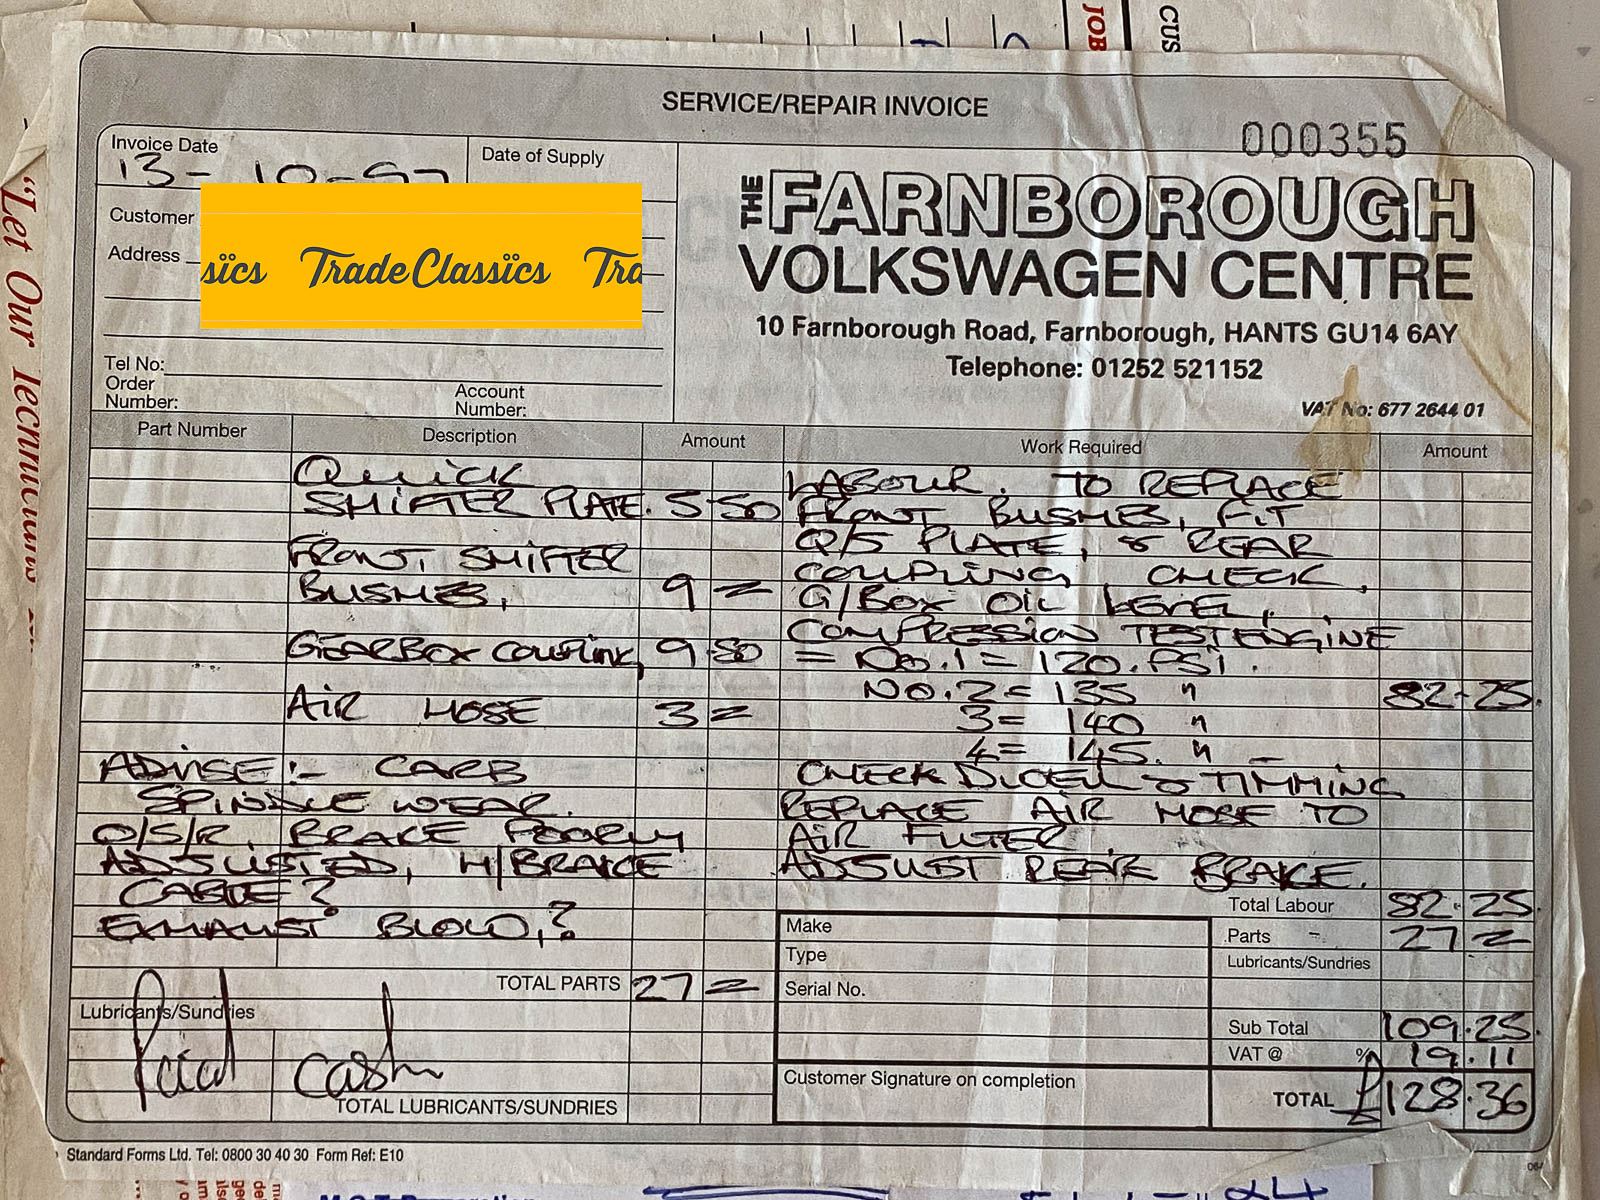 CUS
JOB
SERVICE/REPAIR INVOICE
000355
Invoice Date
13-10-97
Date of Supply
Customer
Address
sics TradeClassics Tra
Tel No:
Order
Number:
Account
Number:
THE FARNBOROUGH
VOLKSWAGEN CENTRE
10 Farnborough Road, Farnborough, HANTS GU14 6AY
Telephone: 01252 521152
VAT No: 677 2644 01
"Let Our Technicians
Part Number Description Amount Work Required Amount
QUICK
SHIFTER PLATE. 5-50
FRONT SHIFTER
BUSHES, 9 =
GEARBOX COUPLING, 9-50
AIR HOSE 3 =
ADVISE:- CARB
SPINDLE WEAR.
O/S/R, BRAKE POORLY
ADJUSTED, H/BRAKE
CABLE?
EXHAUST BLOW,?
LABOUR. TO REPLACE
FRONT BUSHES, FIT
Q/S PLATE, & REAR
COUPLING, CHECK,
G/BOX OIL LEVEL,
COMPRESSION TEST ENGINE
= NO.1 = 120.PSI.
NO.2 = 135 " 82-25.
3 = 140 "
4 = 145. "
CHECK DWELL & TIMMING
REPLACE AIR HOSE TO
AIR FILTER.
ADJUST REAR BRAKE.
TOTAL PARTS 27 =
Lubricants/Sundries
Paid Cash
TOTAL LUBRICANTS/SUNDRIES
Make
Type
Serial No.
Customer Signature on completion
Total Labour 82-25.
Parts - 27 =
Lubricants/Sundries
Sub Total 109.25.
VAT @ % 19.11
TOTAL £128.36
Standard Forms Ltd. Tel: 0800 30 40 30 Form Ref: E10